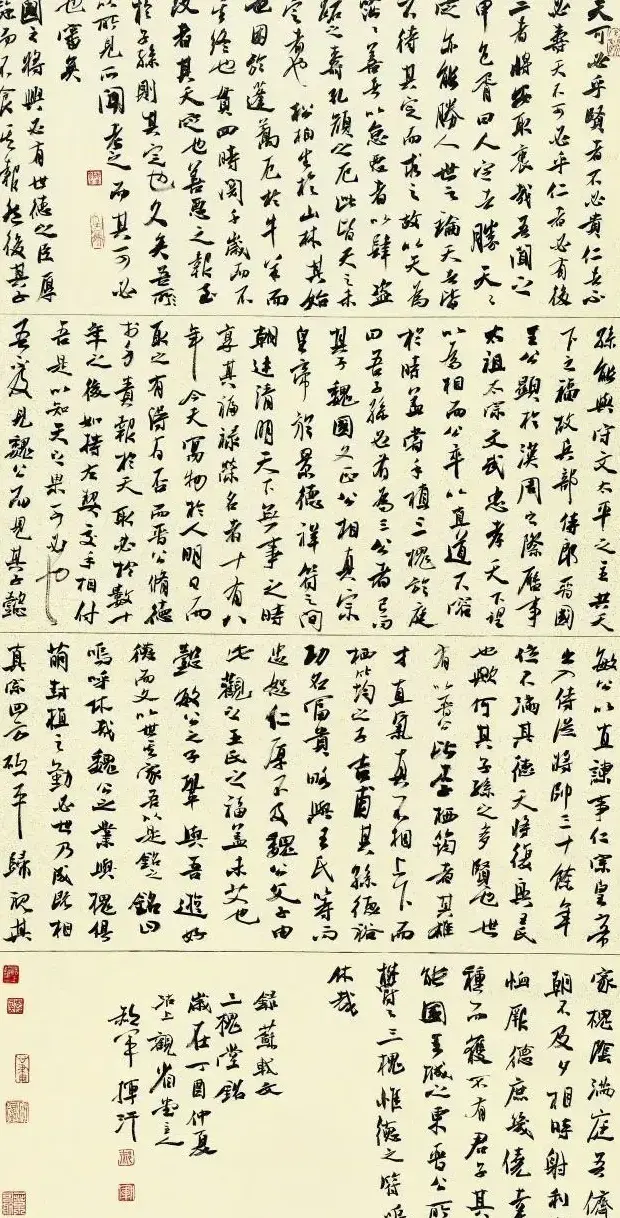 天可必乎賢者不必貴仁者不
必壽天不可必乎仁者必有後
二者將安取衷哉吾聞之
申包胥曰人定者勝天天
定亦能勝人世之論天者皆
不待其定而求之故以天為
茫茫善者以怠惡者以肆盜
跖之壽孔顏之厄此皆天之未
定者也松柏生於山林其始
也困於蓬蒿厄於牛羊而
其終也貫四時閱千歲而不
改者其天定也善惡之報至
於子孫則其定也久矣吾所
以所見所聞考之而其可必
也審矣
國之將興必有世德之臣厚
施而不食其報然後其子
孫能與守文太平之主共天
下之福故兵部侍郎晉國
王公顯於漢周之際歷事
太祖太宗文武忠孝天下望
以為相而公卒以直道不容
於時蓋嘗手植三槐於庭
曰吾子孫必有為三公者已而
其子魏國文正公相真宗
皇帝於景德祥符之間
朝廷清明天下無事之時
享其福祿榮名者十有八
年今夫寓物於人明日而
取之有得有否而晉公脩德
於身責報於天取必於數十
年之後如持左契交手相付
吾是以知天之果可必也
吾不及見魏公而見其子懿
敏公以直諫事仁宗皇帝
出入侍從將帥三十餘年
位不滿其德天將復興王氏
也歟何其子孫之多賢也世
有以晉公比李栖筠者其雄
才直氣真不相上下而
栖筠之子吉甫其孫德裕
功名富貴略與王氏等而
忠恕仁厚不及魏公父子由
此觀之王氏之福蓋未艾也
懿敏公之子鞏與吾遊好
德而文以世其家吾以是銘之銘曰
嗚呼休哉魏公之業與槐俱
萌封植之勤必世乃成既相
真宗四方砥平歸視其
家槐陰滿庭吾儕
朝不及夕相時射利
恤厥德庶幾僥幸
種而穫不有君子其
能國王城之東晉公所
鬱鬱三槐惟德之符嗚
休哉
錄蘇軾文
三槐堂銘
歲在丁酉仲夏
沽上觀省堂主人
軍揮汗